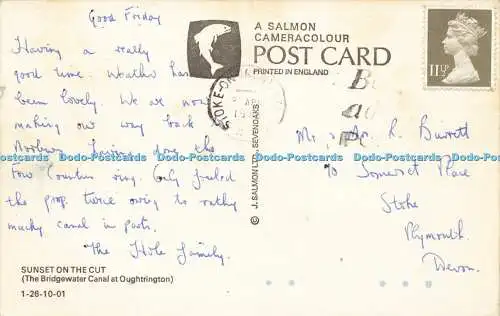 Good Friday
Having a really
good time. Weather has
been lovely. We are now
making our way back
Norbury having done the
Four Counties ring. Only fouled
the prop twice owing to rathy
mucky canal in parts.
The Hole family.
SUNSET ON THE CUT
(The Bridgewater Canal at Oughtrington)
1-26-10-01
A SALMON
CAMERACOLOUR
POST CARD
PRINTED IN ENGLAND
© J. SALMON LTD., SEVENOAKS
STOKE-ON
AP
11½P
Mr, Mrs. R. Burrett
70 Somerset Place
Stoke
Plymouth
Devon.
Do-Postcards Do-Postcards Do-Postcards Do-Postcards Do-Postcards Do-Postcards